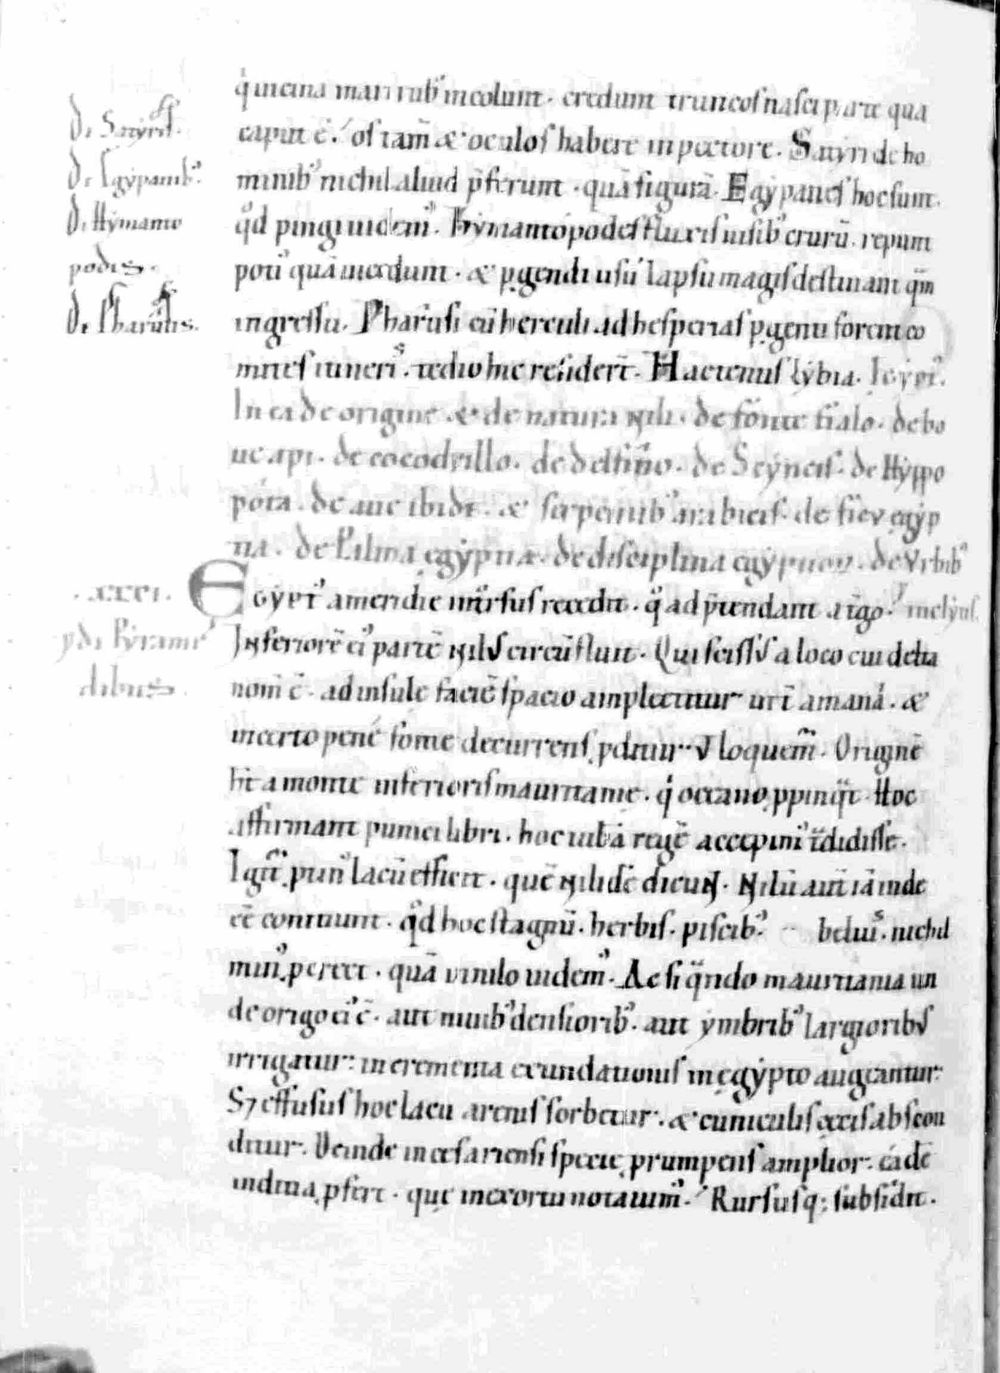 De Satyris.
De Egypanib᾽.
De Hymanto
podis.
De Pharusis.
q̇ uicina mari rub᾽ incolunt. credunt truncos nasci parte qua
caput ē. os tam̄ & oculos habere in pectore. Satyri de ho
minib᾽ nichil aliud p̄ferunt. quā figurā. Egypanes hoc sunt.
qd̄ pingi uidem᾽. Hymantopodes fluxis nisib᾽ crurū. repunt
poti᾽ quā incedunt. & p̱gendi usū lapsu magis destinant qm̄
ingressu. Pharusi cū herculi ad hesperias p̱genti forent co
mites itineris. tedio hic resider̄t. Hactenus lybia. Egypt᾽.
In ea de origine & de natura nili. de fonte tialo. de bo
ue api. de cocodrillo. de delfino. de Scyncis. de Hyppo
pota. de aue ibide. & serpentib᾽ arabicis. de ficu egyp
tia. de Palma egyptia. de disciplina egyptior. de Vrbib᾽
.xxxi.
EGYPT᾽ a meridie intrsus recedit. q̄ ad p̄tendant a tgo. ᾽ inclyus.
de Pyrami
dibus.
Inferiorē ei᾽ partē nilus circūfluit. Qui scissus a loco cui delta
nom̄ ē. ad insule faciē spacio amplectitur int̄ amanā. &
incerto pene fonte decurrens p̱ditur ut loquem̄. Originē
ht̄ a monte inferioris mauritanie. q̇ occano p̱pinqt̄. Hoc
affirmant punici libri. hoc iubā regē accepim᾽ t̄didisse.
Igit̄ p̱tin᾽ lacū efficit. quē nilidē dicunt. Nilū aut̄ iā inde
eē coniciunt. qd̄ hoc stagnū. herbis. piscib᾽. beluis. nichil
min᾽ p̱creet. quā in nilo uidem᾽. Ac si q̄ndo mauritania un
de origo ei᾽ ē. aut niuib᾽ densiorib᾽. aut ymbrib᾽ largioribus
irrigatur: incrementa exundationis in egypto augeantur:
S; effusus hoc lacu arenis sorbetur. & cuniculis cecis abscon
ditur. Deinde in cesariensi specu p̱rumpens amplior: eadē
indicia p̱fert. que in exortu notauim᾽. Rursusq; subsidit.